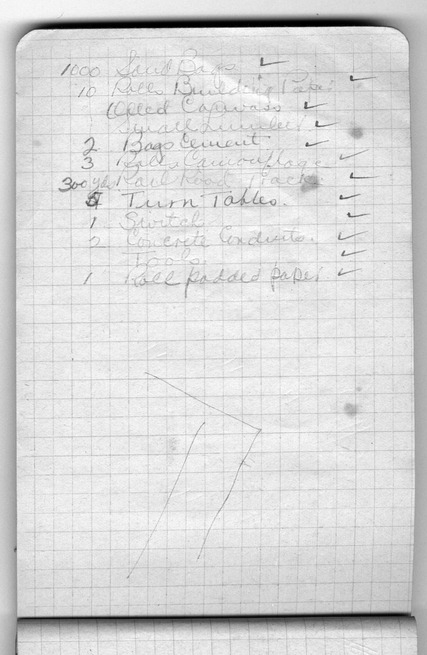 1000 Sand Bags ✓
10 Rolls Building Paper ✓
Oiled Canvass ✓
Small Lumber ✓
2 Bags Cement ✓
3 Rolls Camouflage ✓
300 yds Rail Road Track ✓
Turn Tables. ✓
1 Switch ✓
2 Concrete Conduits. ✓
Tools. ✓
1 Roll padded paper ✓